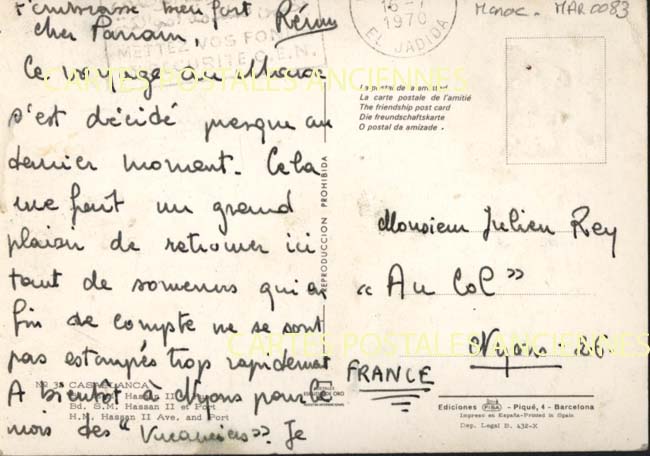 t'embrasse bien fort
Rémy
cher Parrain,
Ce voyage au Maroc
s'est décidé presque au
dernier moment. Cela
me fait un grand
plaisir de retrouver ici
tant de souvenirs qui en
fin de compte ne se sont
pas estompés trop rapidement
A bientôt à Nyons pour le
mois des "Vacances". Je
METTEZ VOS FON
SECURITE C.E.N.
16-7
1970
EL JADIDA
Maroc - MAR0083
CARTES POSTALES ANCIENNES
La carte postale de l'amitié
The friendship post card
Die freundschaftskarte
O postal da amizade
REPRODUCCION PROHIBIDA
Monsieur Julien Rey
"Au Col"
Nyons 26
FRANCE
CARTES POSTALES ANCIENNES
Nº 35 CASABLANCA
Hassan II
Bd. S.M. Hassan II et Port
H.M. Hassan II Ave. and Port
Ediciones PISA - Piqué, 4 - Barcelona
Impreso en España-Printed in Spain
Dep. Legal B. 432-X